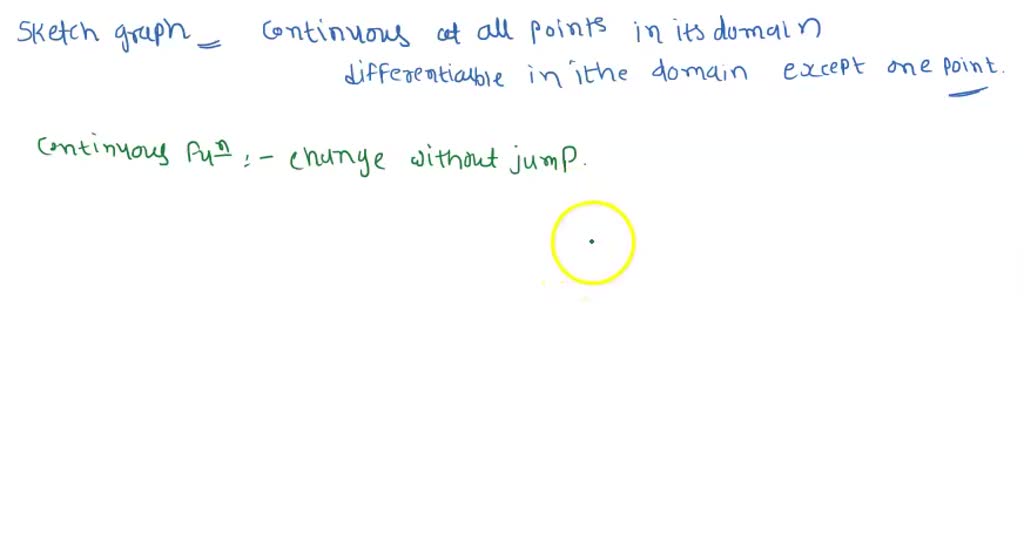 Sketch graph - Continuous at all points in its domain
differentiable in ithe domain except one point.
Continuous Fuⁿ :- change without jump.